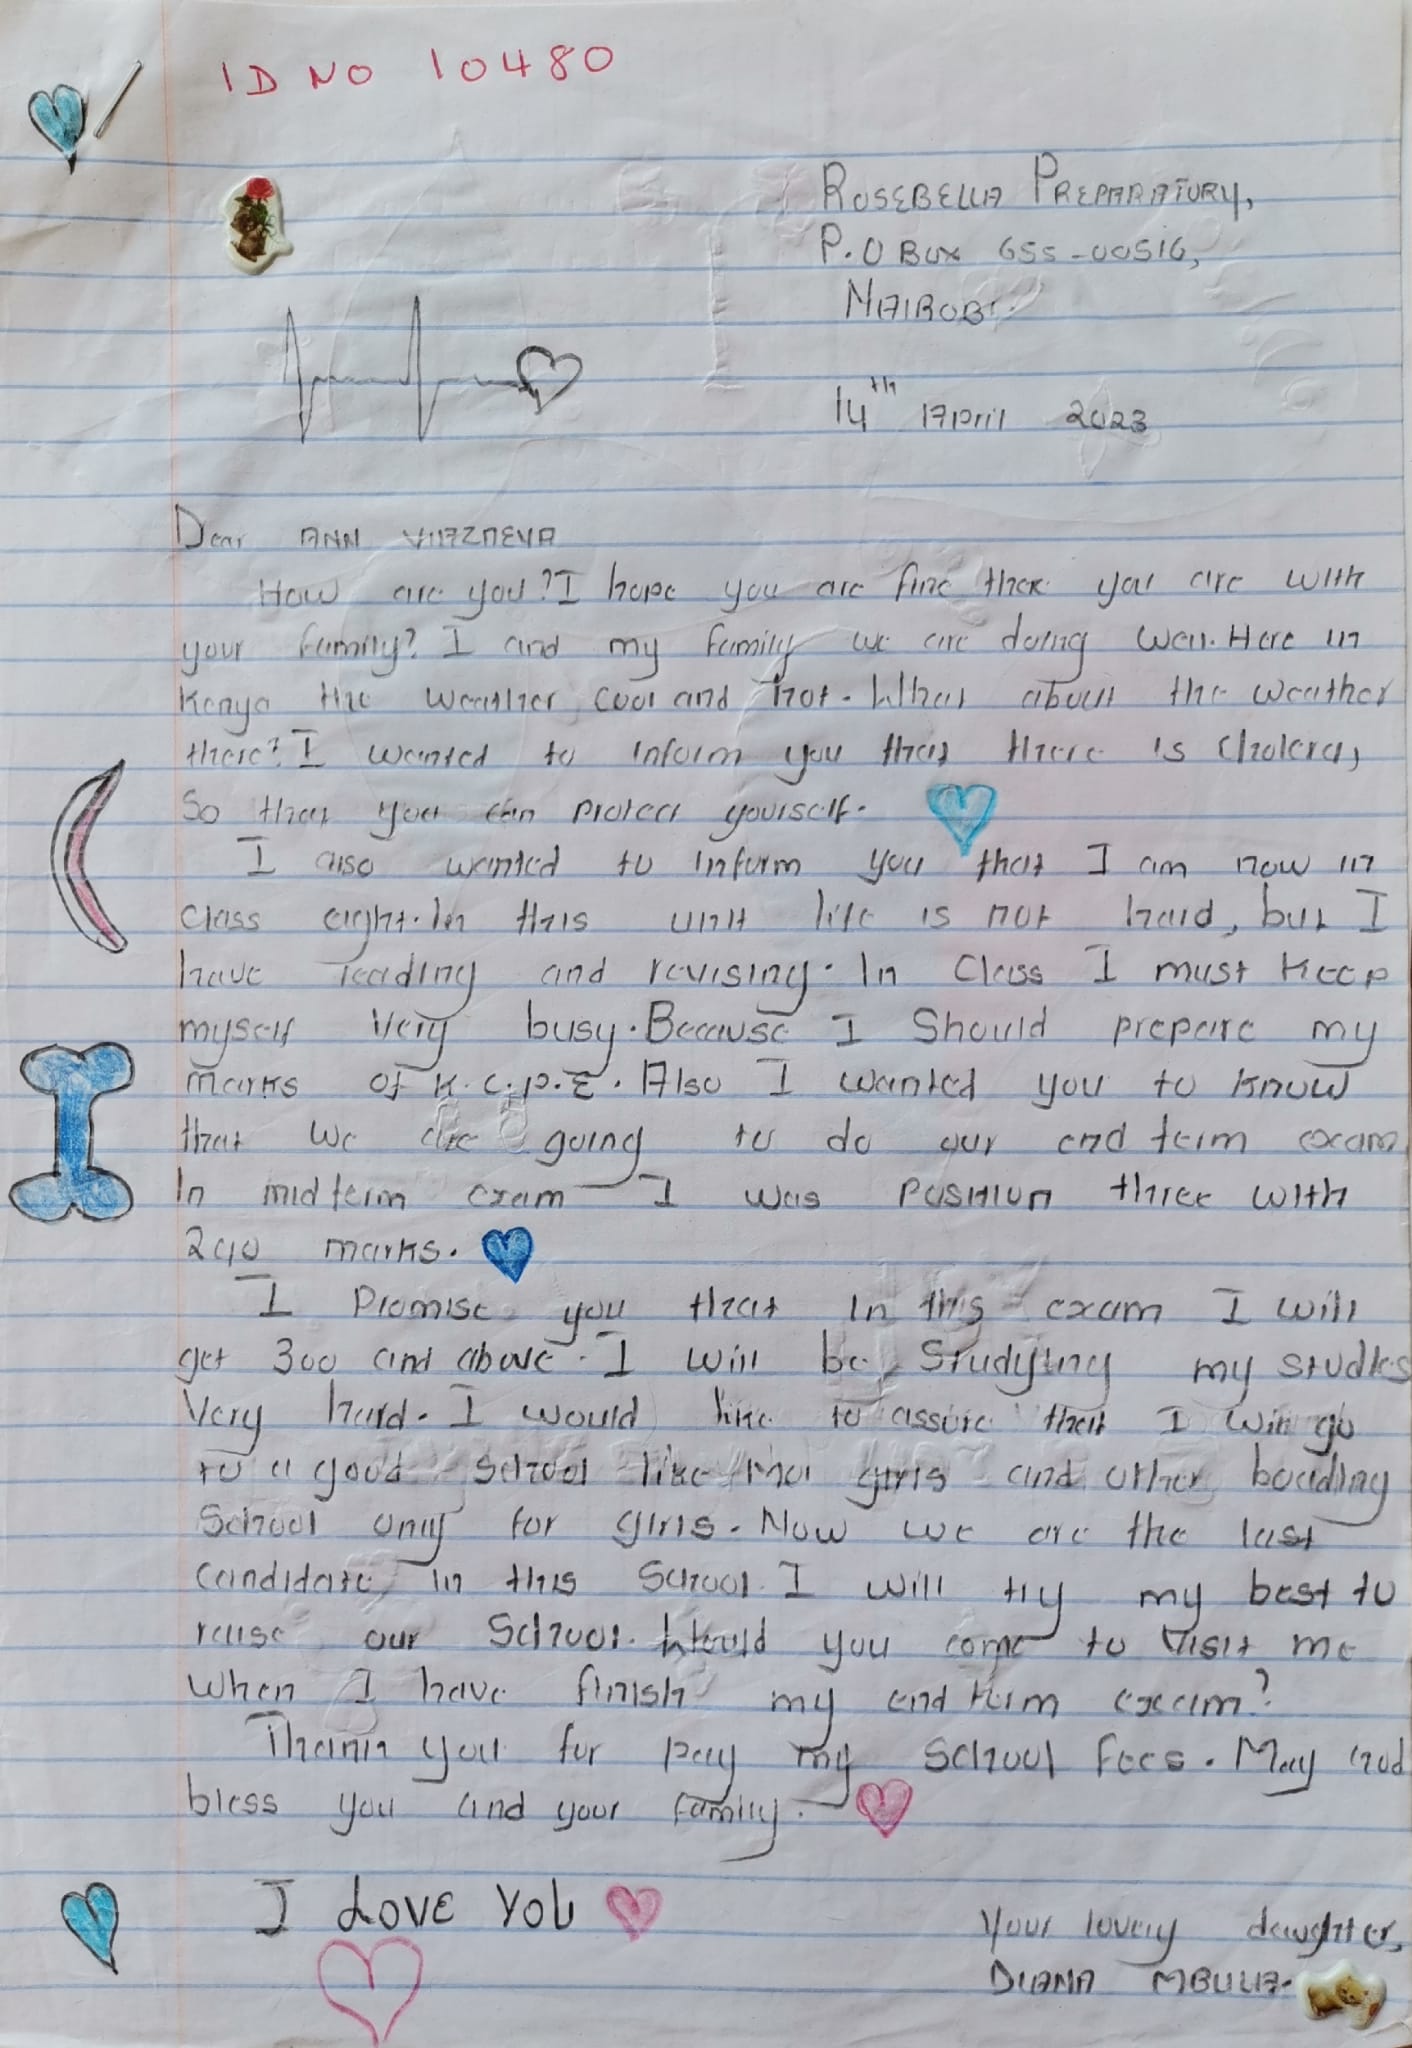 ID NO 10480
ROSEBELLA PREPARATORY,
P.O BOX 655-00516,
NAIROBI.
14th April 2023
Dear ANN
How are you? I hope you are fine there you are with
your family? I and my family we are doing well. Here in
Kenya the weather cool and hot. What about the weather
there? I wanted to inform you that there is cholera,
So that you can protect yourself.
I also wanted to inform you that I am now in
class eight. In this unit life is not hard, but I
have reading and revising. In class I must keep
myself very busy. Because I should prepare my
marks of K.C.P.E. Also I wanted you to know
that we are going to do our end term exam
In midterm exam I was position three with
290 marks.
I Promise you that in this exam I will
get 300 and above. I will be studying my studies
very hard. I would like to assure that I will go
to a good school like Moi girls and other boading
School only for girls. Now we are the last
candidate in this school. I will try my best to
raise our school. Would you come to visit me
when I have finish my end term exam?
Thank you for pay my school fees. May God
bless you and your family.
I LOVE YOU
Your lovely daughter,
DIANA MBULA.